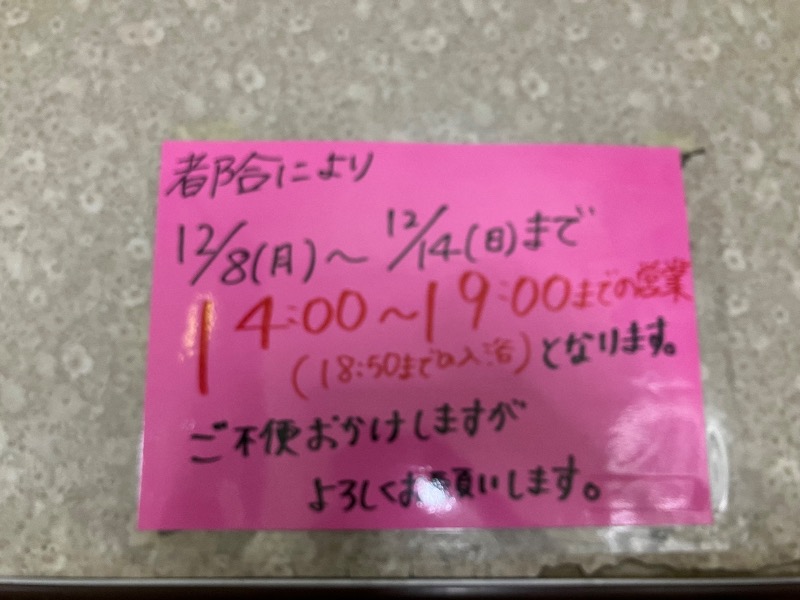 都合により
12/8(月)～12/14(日)まで
14:00～19:00までの営業
(18:50までの入浴)となります。
ご不便おかけしますが
よろしくお願いします。